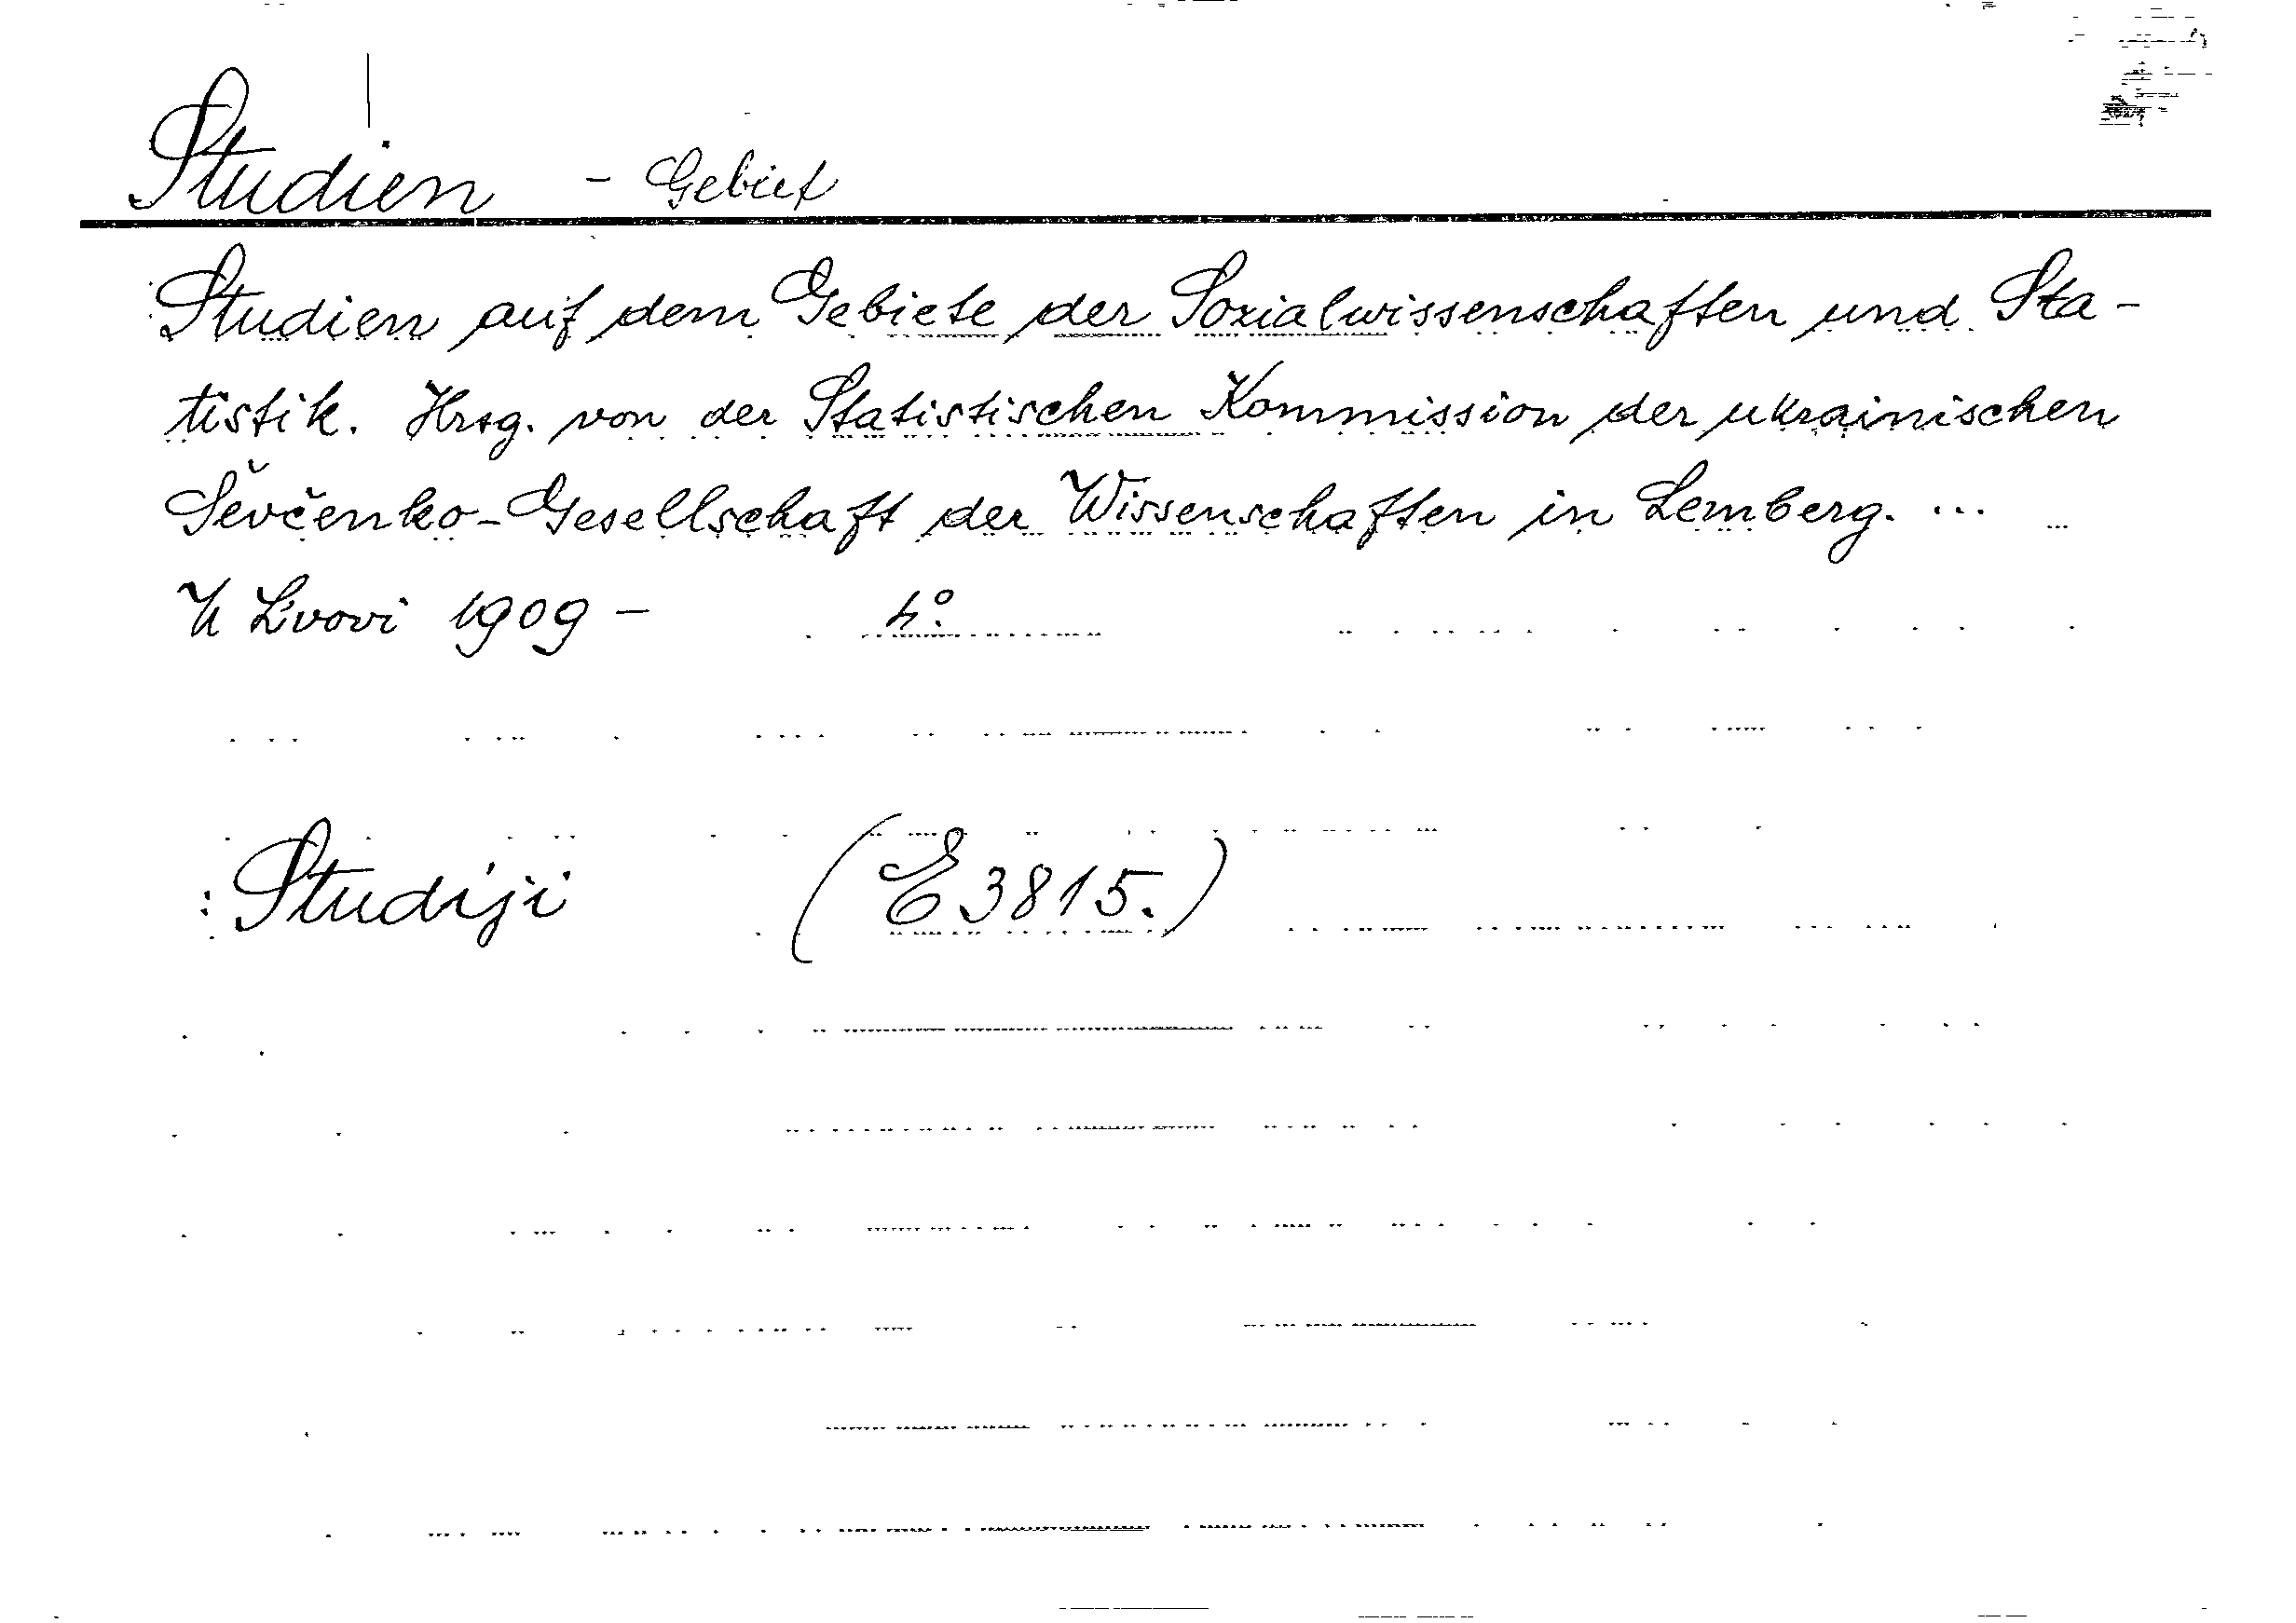 Studien - Gebiet
Studien auf dem Gebiete der Sozialwissenschaften und Sta-
tistik. Hrsg. von der Statistischen Kommission der ukrainischen
Ševčenko-Gesellschaft der Wissenschaften in Lemberg. ...
U Lvovi 1909- 4°.
: Studiji (E 3815.)